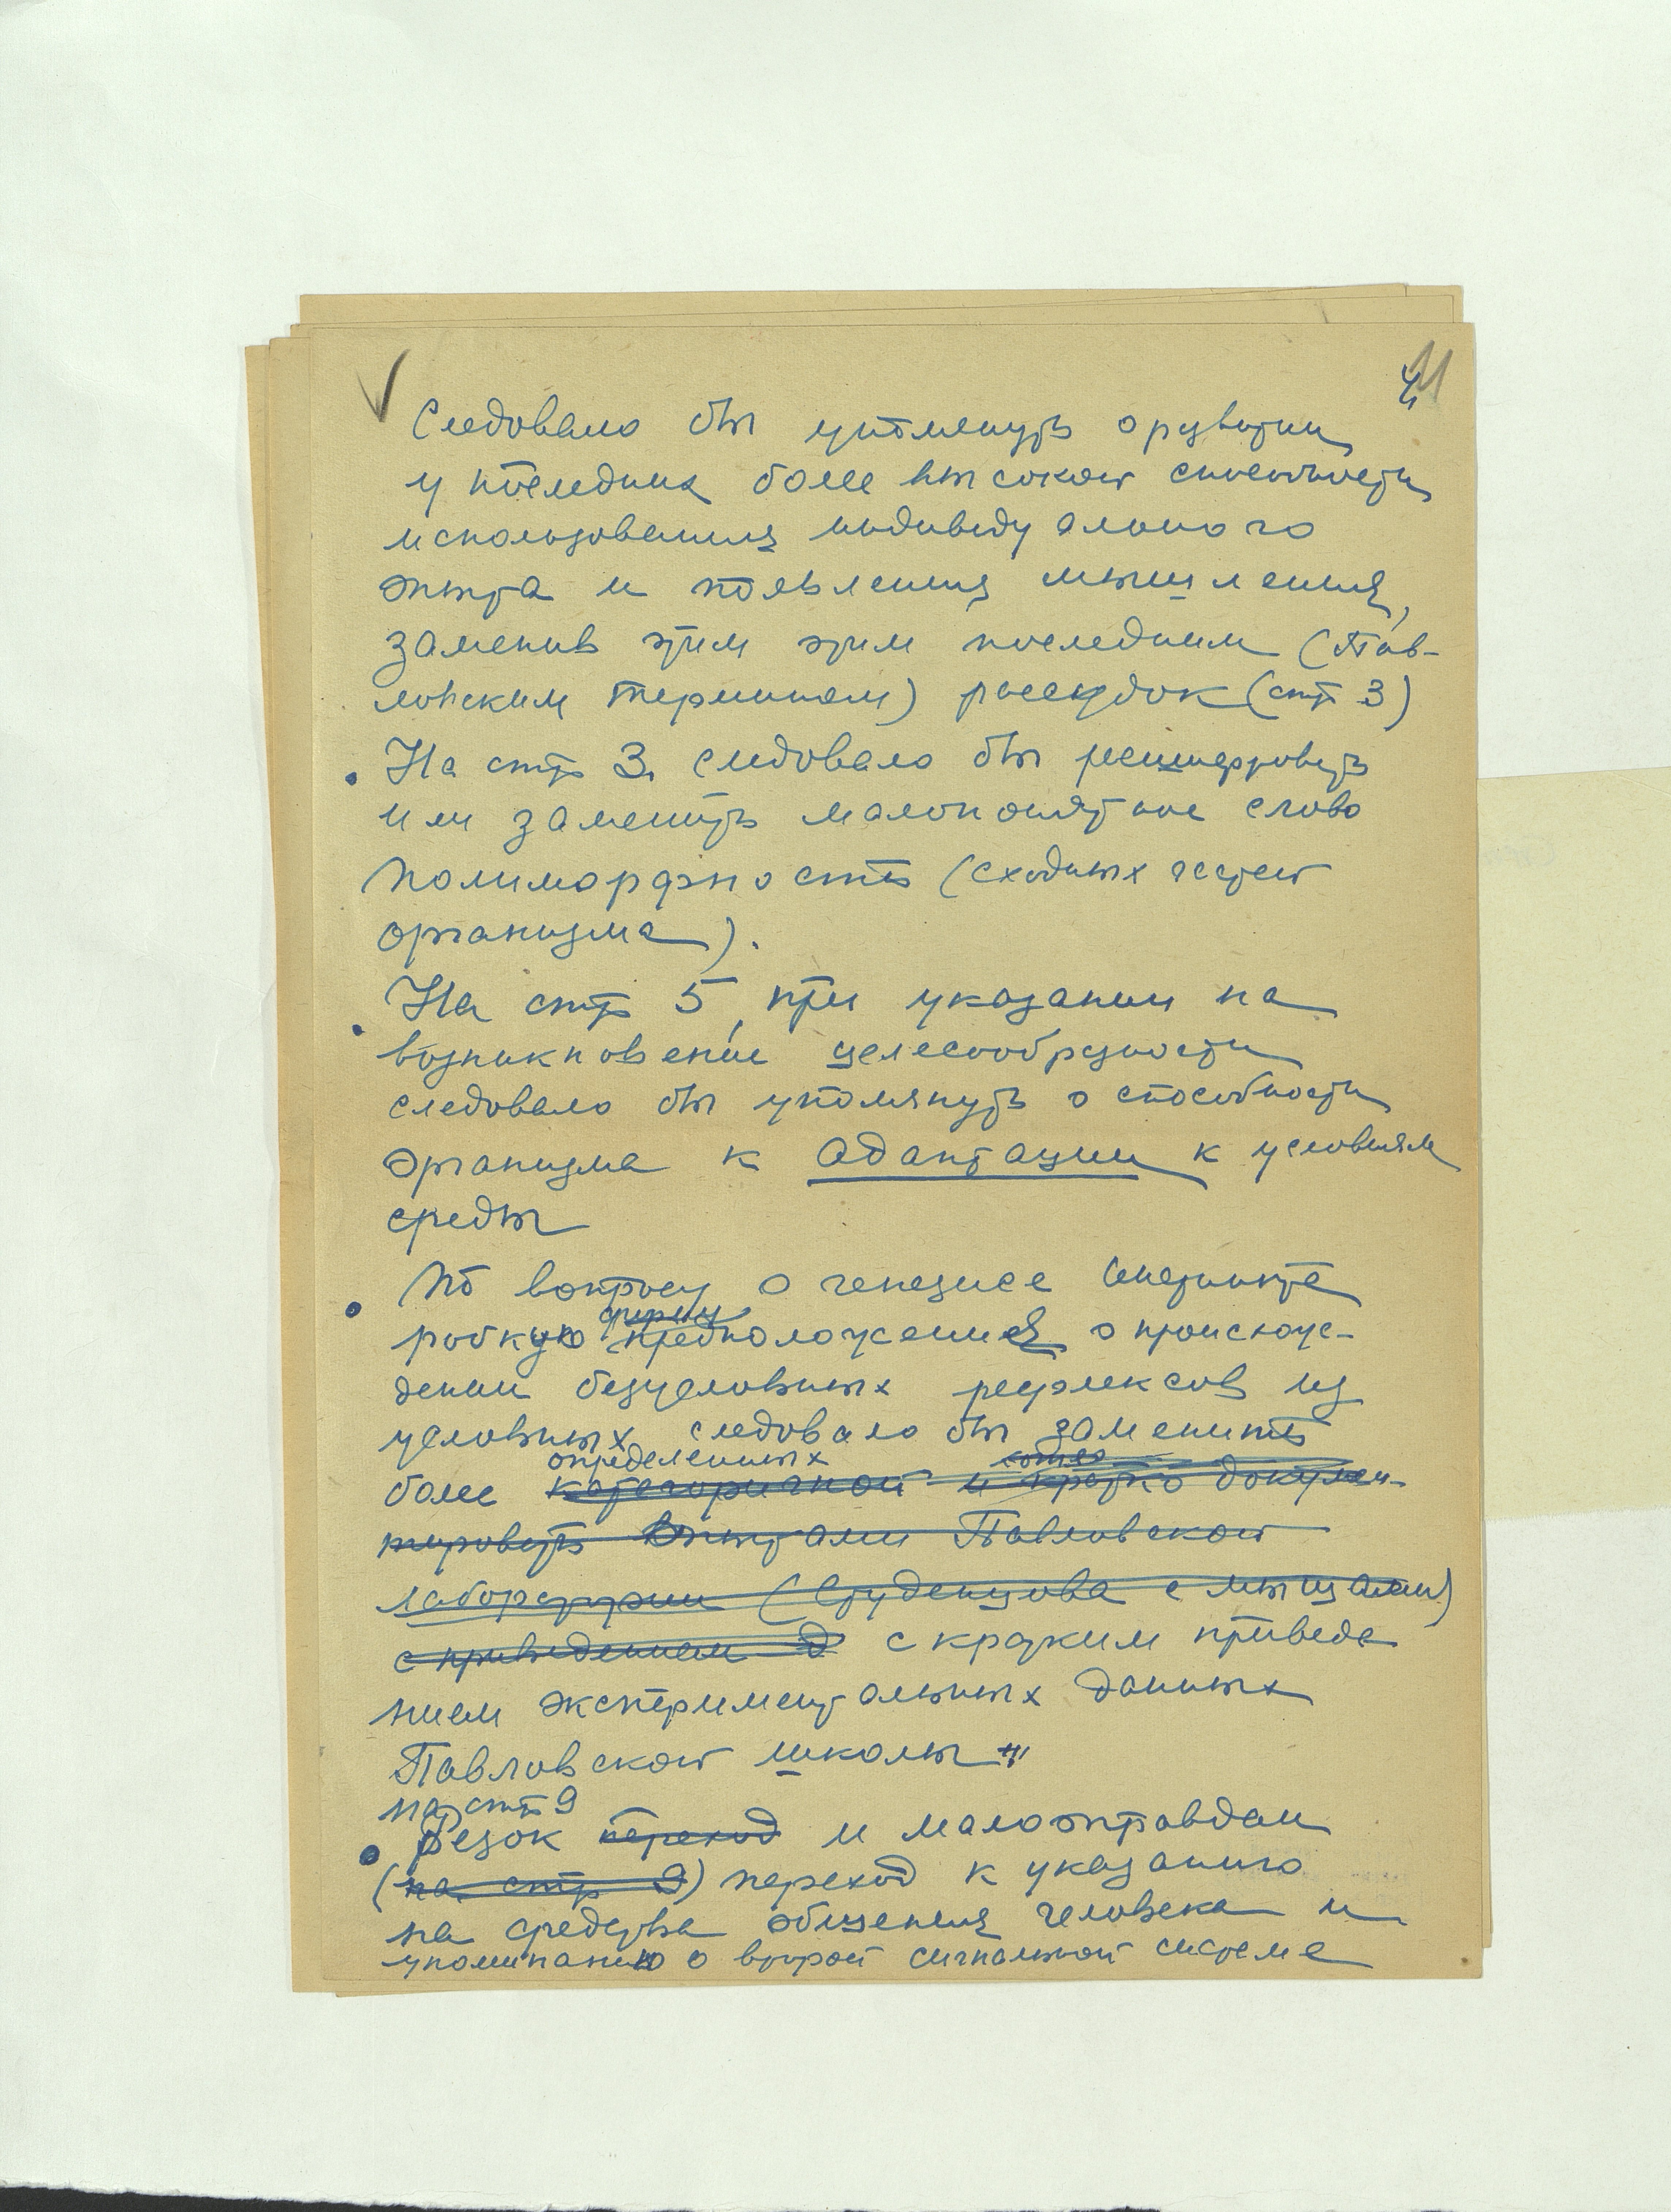 4
Следовало бы упомянуть о развитии
у последних более высокой способности
использования индивидуального
опыта и появления мышления,
заменив этим этим последним (Пав-
ловским термином) рассудок (стр 3)
• На стр 3. следовало бы расшифровать
или заменить малопонятное слово
полиморфность (сходных частей
организма).
• На стр 5, при указании на
возникновение целесообразности
следовало бы упомянуть о способности
организма к адаптации к условиям
среды
• По вопросу о генезисе инстинкта
форму
робкую предположения о происхож-
дении безусловных рефлексов из
условных следовало бы заменить
определенных
более категоричной и кратко докумен-
тировать опытами Павловской
лаборатории (Студенцова с мышами)
с приведением д с кратким приведе
нием экспериментальных данных
Павловской школы
на стр 9
• Резок переход и малооправдан
(на стр 9) переход к указанию
на средства общения человека и
упоминанию о второй сигнальной системе